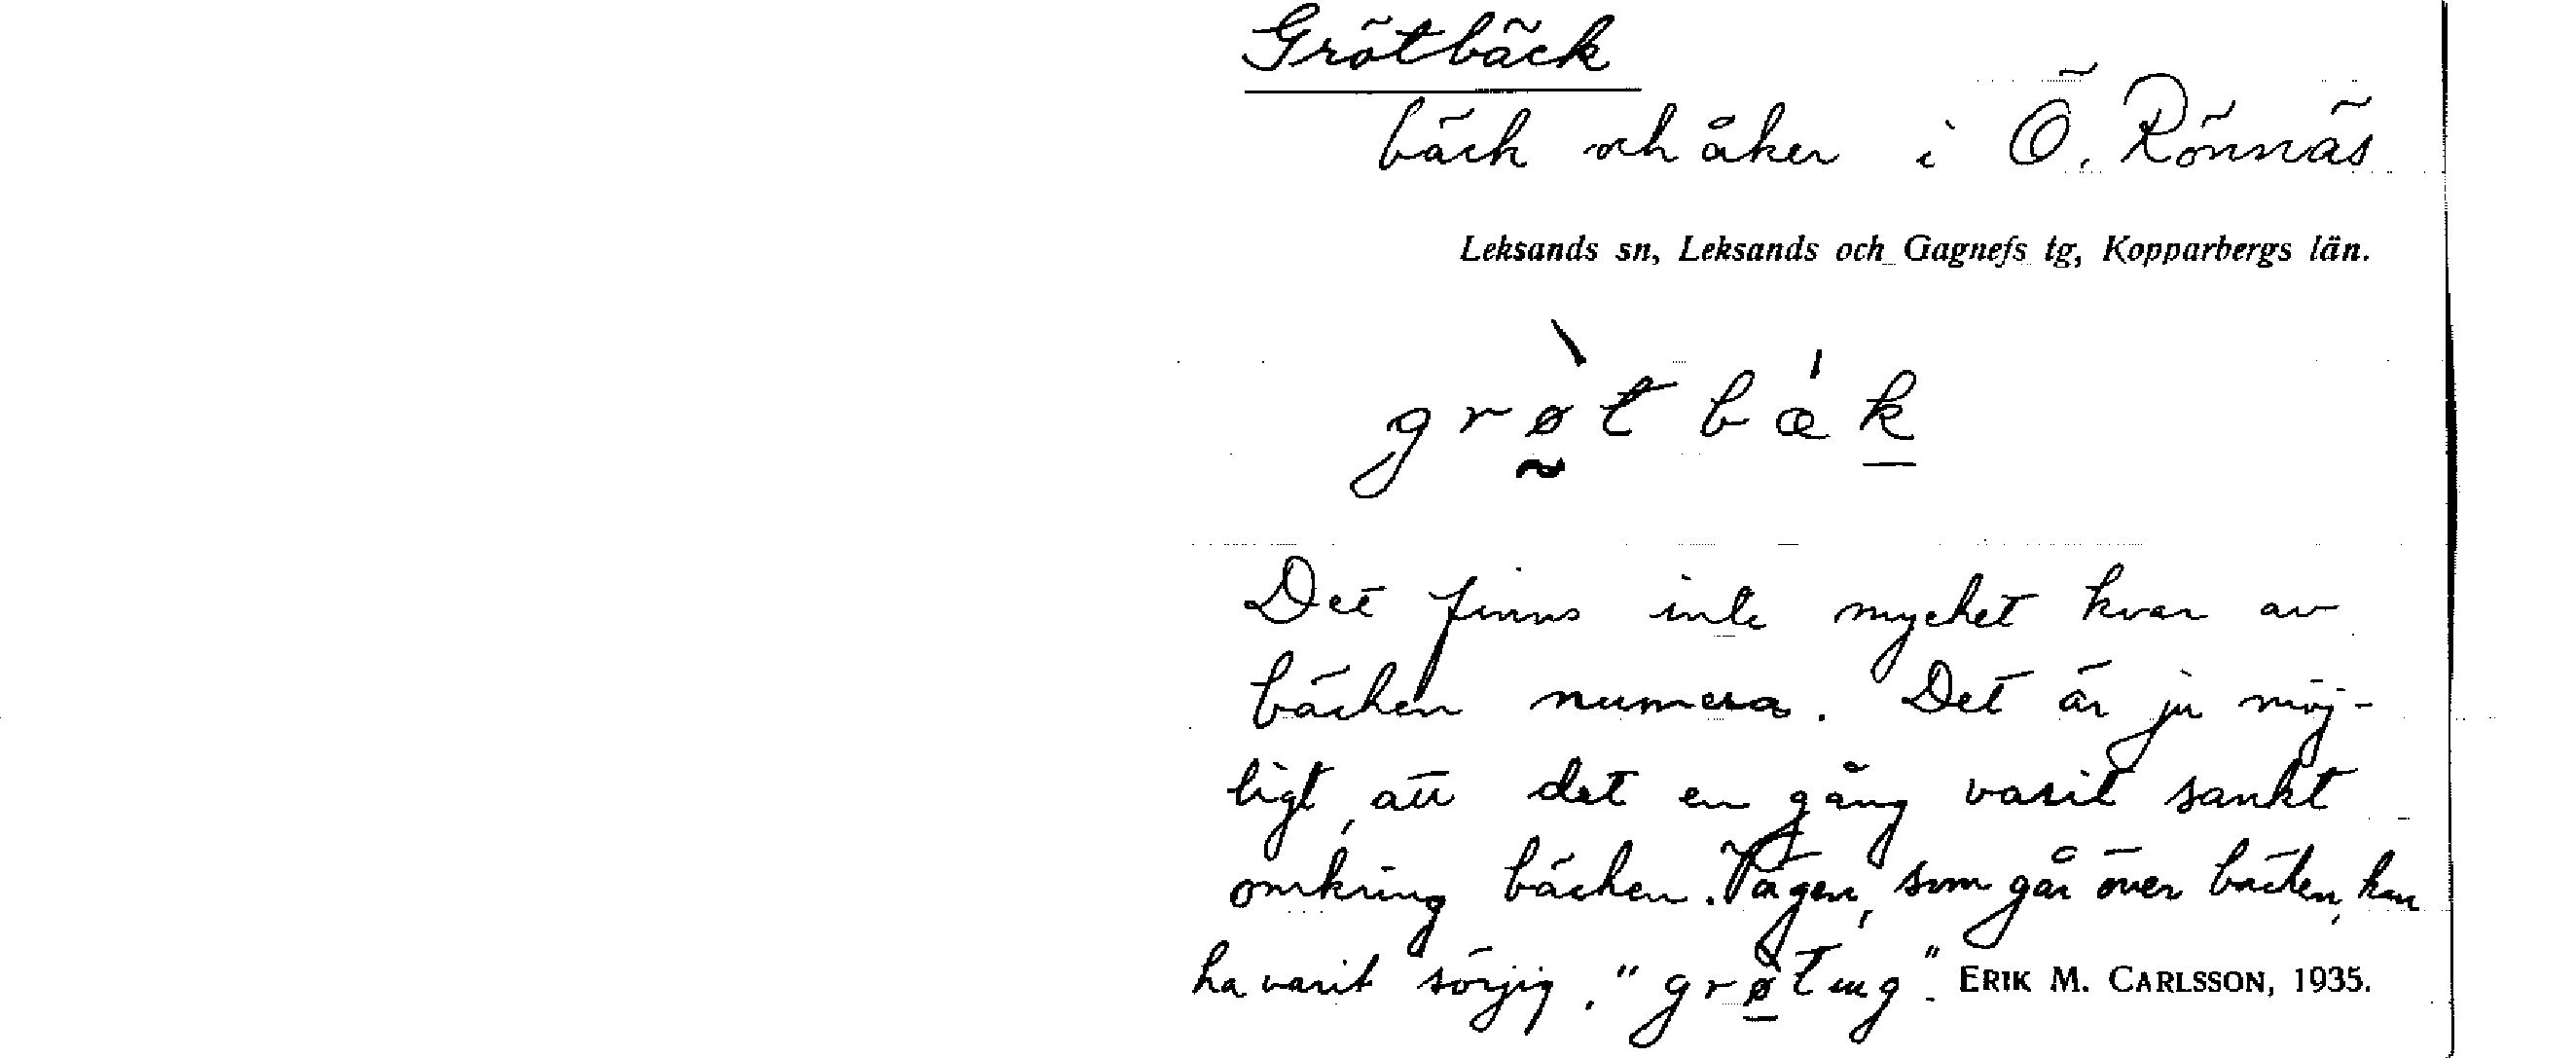 Grötbäck
bäck och åker i Ö. Rönnäs
Leksands sn, Leksands och Gagnefs tg, Kopparbergs län.
grø̰̀t bæ̍k̲
Det finns inte mycket kvar av
bäcken numera. Det är ju möj-
ligt, att det en gång varit sankt
omkring bäcken. Vägen, som går över bäcken, kan
ha varit sörjig. "grø̲̀tug". ERIK M. CARLSSON, 1935.